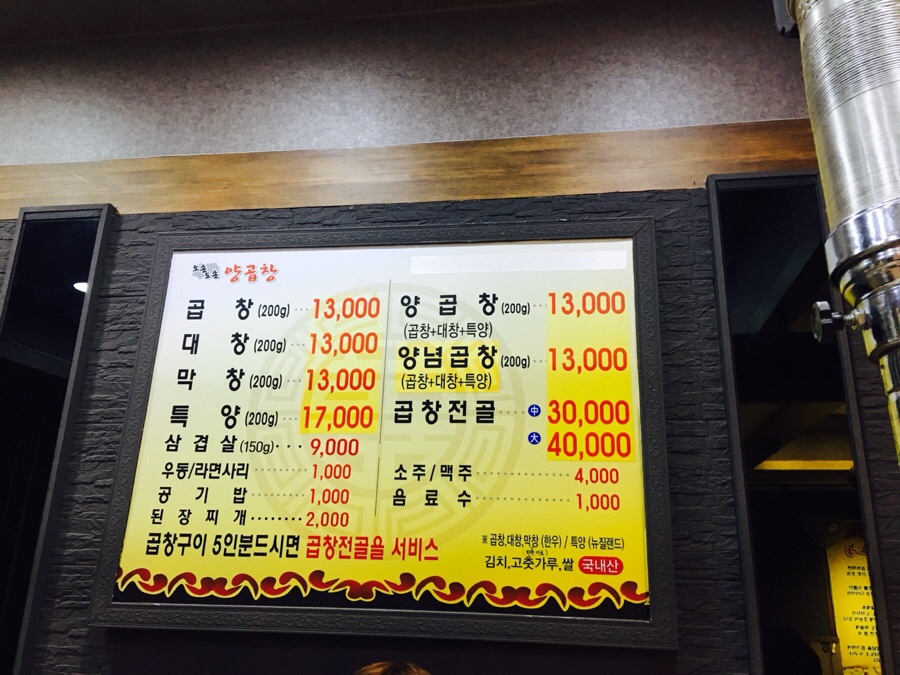 오손도손 양곱창
곱 창 (200g) ··· 13,000
대 창 (200g) ··· 13,000
막 창 (200g) ··· 13,000
특 양 (200g) ··· 17,000
삼 겹 살 (150g) ··· 9,000
우동/라면사리 ········ 1,000
공 기 밥 ········ 1,000
된 장 찌 개 ········ 2,000
양 곱 창 (200g) ··· 13,000
(곱창+대창+특양)
양념곱창 (200g) ··· 13,000
(곱창+대창+특양)
곱창전골 ···· 中 30,000
大 40,000
소 주 / 맥 주 ········ 4,000
음 료 수 ········ 1,000
곱창구이 5인분드시면 곱창전골을 서비스
※ 곱창,대창,막창 (한우) / 특양 (뉴질랜드)
김치,고춧가루,쌀 국내산